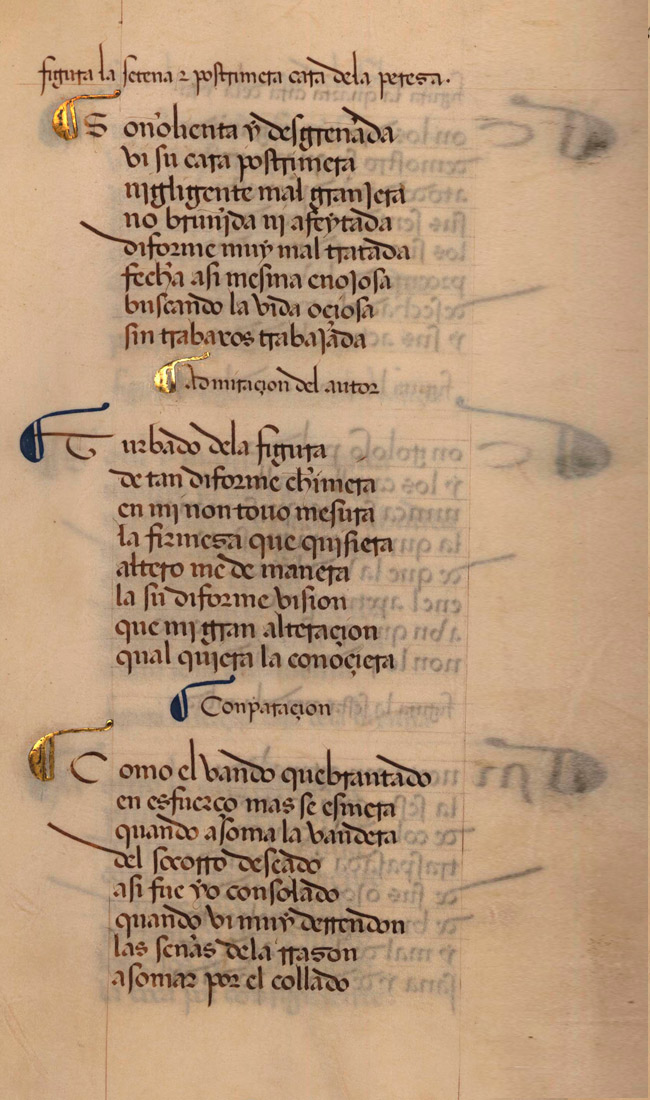 figura la setena ⁊ postrimera cara dela peresa.
Soñolienta ÿ desgreñada
vi su cara postrimera
nigligente mal granjera
no bruñida ni afeytada
diforme muÿ mal tratada
fecha asi mesma enojosa
buscando la vida oçiosa
sin trabaxos trabajada
Admiraçion del autor
Turbado dela figura
de tan diforme chimera
en mi non touo mesura
la firmesa que quisiera
altero me de manera
la su diforme vision
que mi gran alteraçion
qual quiera la conoçiera
Conparaçion
Como el vando quebrantado
en esfuerço mas se esmera
quando asoma la vandera
del socorro deseado
asi fue yo consolado
quando vi muÿ derrendon
las señas dela rrason
asomar por el collado